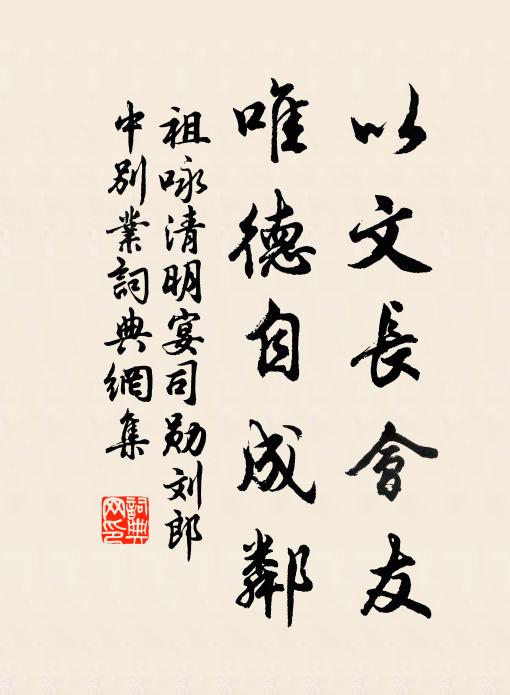 以文長會友
唯德自成鄰
祖咏清明宴司勋刘郎
中别業詞典網集
詞典
网印